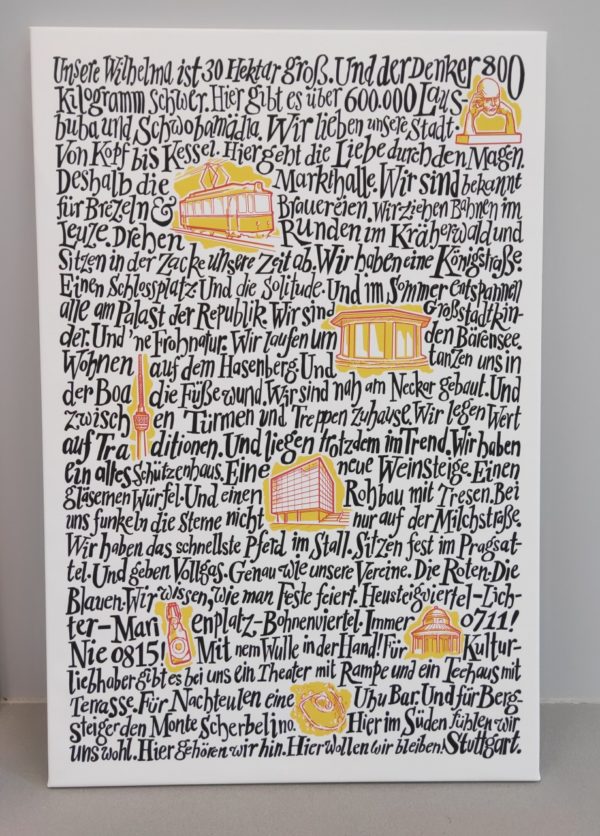 Unsere Wilhelma ist 30 Hektar groß. Und der Denker 800
Kilogramm schwer. Hier gibt es über 600.000 Laus-
buba und Schwobamädla. Wir lieben unsere Stadt.
Von Kopf bis Kessel. Hier geht die Liebe durch den Magen.
Deshalb die Markthalle. Wir sind bekannt
für Brezeln & Brauereien. Wir ziehen Bahnen im
Leuze. Drehen Runden im Kräherwald und
Sitzen in der Zacke unsere Zeit ab. Wir haben eine Königstraße.
Einen Schlossplatz. Und die Solitude. Und im Sommer entspannen
alle am Palast der Republik. Wir sind Großstadtkin-
der. Und 'ne Frohnatur. Wir laufen um den Bärensee.
Wohnen auf dem Hasenberg. Und tanzen uns in
der Boa die Füße wund. Wir sind nah am Neckar gebaut. Und
zwischen Türmen und Treppen zuhause. Wir legen Wert
auf Traditionen. Und liegen trotzdem im Trend. Wir haben
ein altes Schützenhaus. Eine neue Weinsteige. Einen
gläsernen Würfel. Und einen Rohbau mit Tresen. Bei
uns funkeln die Sterne nicht nur auf der Milchstraße.
Wir haben das schnellste Pferd im Stall. Sitzen fest im Pragsat-
tel. Und geben Vollgas. Genau wie unsere Vereine. Die Roten. Die
Blauen. Wir wissen, wie man Feste feiert. Heusteigviertel-Lich-
ter-Marienplatz-Bohnenviertel. Immer 0711!
Nie 0815! Mit nem Wulle in der Hand! Für Kultur-
liebhaber gibt es bei uns ein Theater mit Rampe und ein Teehaus mit
Terrasse. Für Nachteulen eine Uhu Bar. Und für Berg-
steiger den Monte Scherbelino. Hier im Süden fühlen wir
uns wohl. Hier gehören wir hin. Hier wollen wir bleiben! Stuttgart.